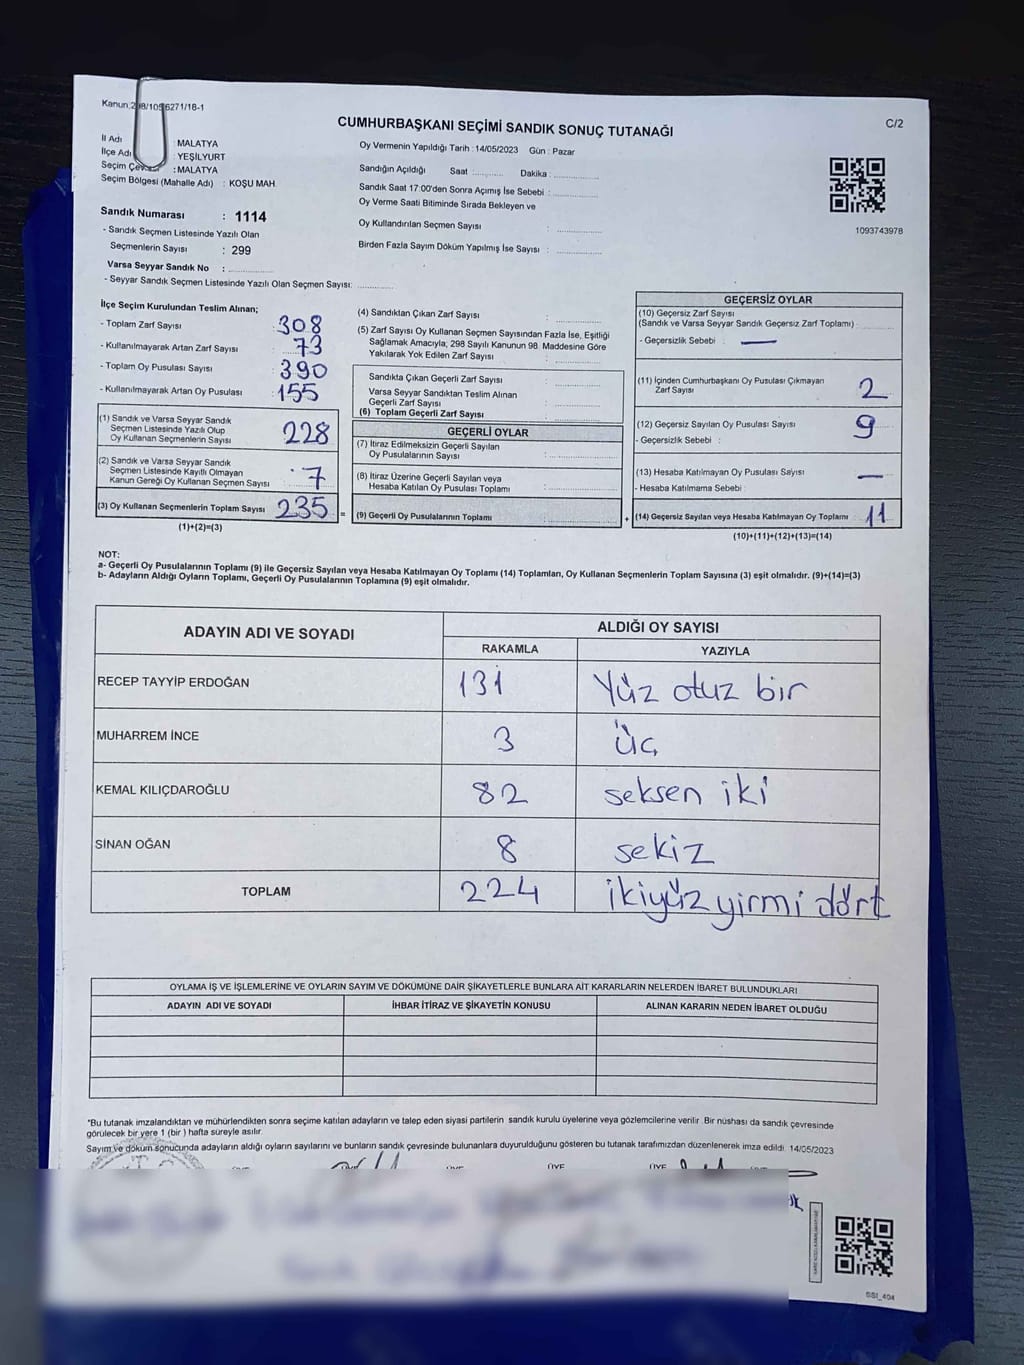 C/2
CUMHURBAŞKANI SEÇİMİ SANDIK SONUÇ TUTANAĞI
İl Adı : MALATYA
İlçe Adı : YEŞİLYURT
: MALATYA
Seçim Bölgesi (Mahalle Adı) : KOŞU MAH.
Sandık Numarası : 1114
- Sandık Seçmen Listesinde Yazılı Olan
Seçmenlerin Sayısı : 299
Varsa Seyyar Sandık No :
- Seyyar Sandık Seçmen Listesinde Yazılı Olan Seçmen Sayısı:
Oy Vermenin Yapıldığı Tarih : 14/05/2023 Gün : Pazar
Sandığın Açıldığı Saat Dakika :
Sandık Saat 17:00'den Sonra Açımış İse Sebebi :
Oy Verme Saati Bitiminde Sırada Bekleyen ve
Oy Kullandırılan Seçmen Sayısı :
Birden Fazla Sayım Döküm Yapılmış İse Sayısı :
1093743978
İlçe Seçim Kurulundan Teslim Alınan;
- Toplam Zarf Sayısı : 308
- Kullanılmayarak Artan Zarf Sayısı : 73
- Toplam Oy Pusulası Sayısı : 390
- Kullanılmayarak Artan Oy Pusulası : 155
(1) Sandık ve Varsa Seyyar Sandık
Seçmen Listesinde Yazılı Olup
Oy Kullanan Seçmenlerin Sayısı 228
(2) Sandık ve Varsa Seyyar Sandık
Seçmen Listesinde Kayıtlı Olmayan
Kanun Gereği Oy Kullanan Seçmen Sayısı 7
(3) Oy Kullanan Seçmenlerin Toplam Sayısı 235 =
(1)+(2)=(3)
(4) Sandıktan Çıkan Zarf Sayısı :
(5) Zarf Sayısı Oy Kullanan Seçmen Sayısından Fazla İse, Eşitliği
Sağlamak Amacıyla, 298 Sayılı Kanunun 98. Maddesine Göre
Yakılarak Yok Edilen Zarf Sayısı :
Sandıkta Çıkan Geçerli Zarf Sayısı :
Varsa Seyyar Sandıktan Teslim Alınan
Geçerli Zarf Sayısı :
(6) Toplam Geçerli Zarf Sayısı
GEÇERLİ OYLAR
(7) İtiraz Edilmeksizin Geçerli Sayılan
Oy Pusulalarının Sayısı :
(8) İtiraz Üzerine Geçerli Sayılan veya
Hesaba Katılan Oy Pusulası Toplamı :
(9) Geçerli Oy Pusulalarının Toplamı +
GEÇERSİZ OYLAR
(10) Geçersiz Zarf Sayısı
(Sandık ve Varsa Seyyar Sandık Geçersiz Zarf Toplamı)
- Geçersizlik Sebebi : —
(11) İçinden Cumhurbaşkanı Oy Pusulası Çıkmayan
Zarf Sayısı 2
(12) Geçersiz Sayılan Oy Pusulası Sayısı 9
- Geçersizlik Sebebi :
(13) Hesaba Katılmayan Oy Pusulası Sayısı —
- Hesaba Katılmama Sebebi :
(14) Geçersiz Sayılan veya Hesaba Katılmayan Oy Toplamı 11
(10)+(11)+(12)+(13)=(14)
NOT:
a- Geçerli Oy Pusulalarının Toplamı (9) ile Geçersiz Sayılan veya Hesaba Katılmayan Oy Toplamı (14) Toplamları, Oy Kullanan Seçmenlerin Toplam Sayısına (3) eşit olmalıdır. (9)+(14)=(3)
b- Adayların Aldığı Oyların Toplamı, Geçerli Oy Pusulalarının Toplamına (9) eşit olmalıdır.
ADAYIN ADI VE SOYADI ALDIĞI OY SAYISI
RAKAMLA YAZIYLA
RECEP TAYYİP ERDOĞAN 131 Yüz otuz bir
MUHARREM İNCE 3 üç
KEMAL KILIÇDAROĞLU 82 seksen iki
SİNAN OĞAN 8 sekiz
TOPLAM 224 ikiyüz yirmi dört
OYLAMA İŞ VE İŞLEMLERİNE VE OYLARIN SAYIM VE DÖKÜMÜNE DAİR ŞİKAYETLERLE BUNLARA AİT KARARLARIN NELERDEN İBARET BULUNDUKLARI
ADAYIN ADI VE SOYADI İHBAR İTİRAZ VE ŞİKAYETİN KONUSU ALINAN KARARIN NEDEN İBARET OLDUĞU
*Bu tutanak imzalandıktan ve mühürlendikten sonra seçime katılan adayların ve talep eden siyasi partilerin sandık kurulu üyelerine veya gözlemcilerine verilir. Bir nüshası da sandık çevresinde
görülecek bir yere 1 (bir ) hafta süreyle asılır.
Sayım ve döküm sonucunda adayların aldığı oyların sayılarını ve bunların sandık çevresinde bulunanlara duyurulduğunu gösteren bu tutanak tarafımızdan düzenlenerek imza edildi. 14/05/2023
SSI_404